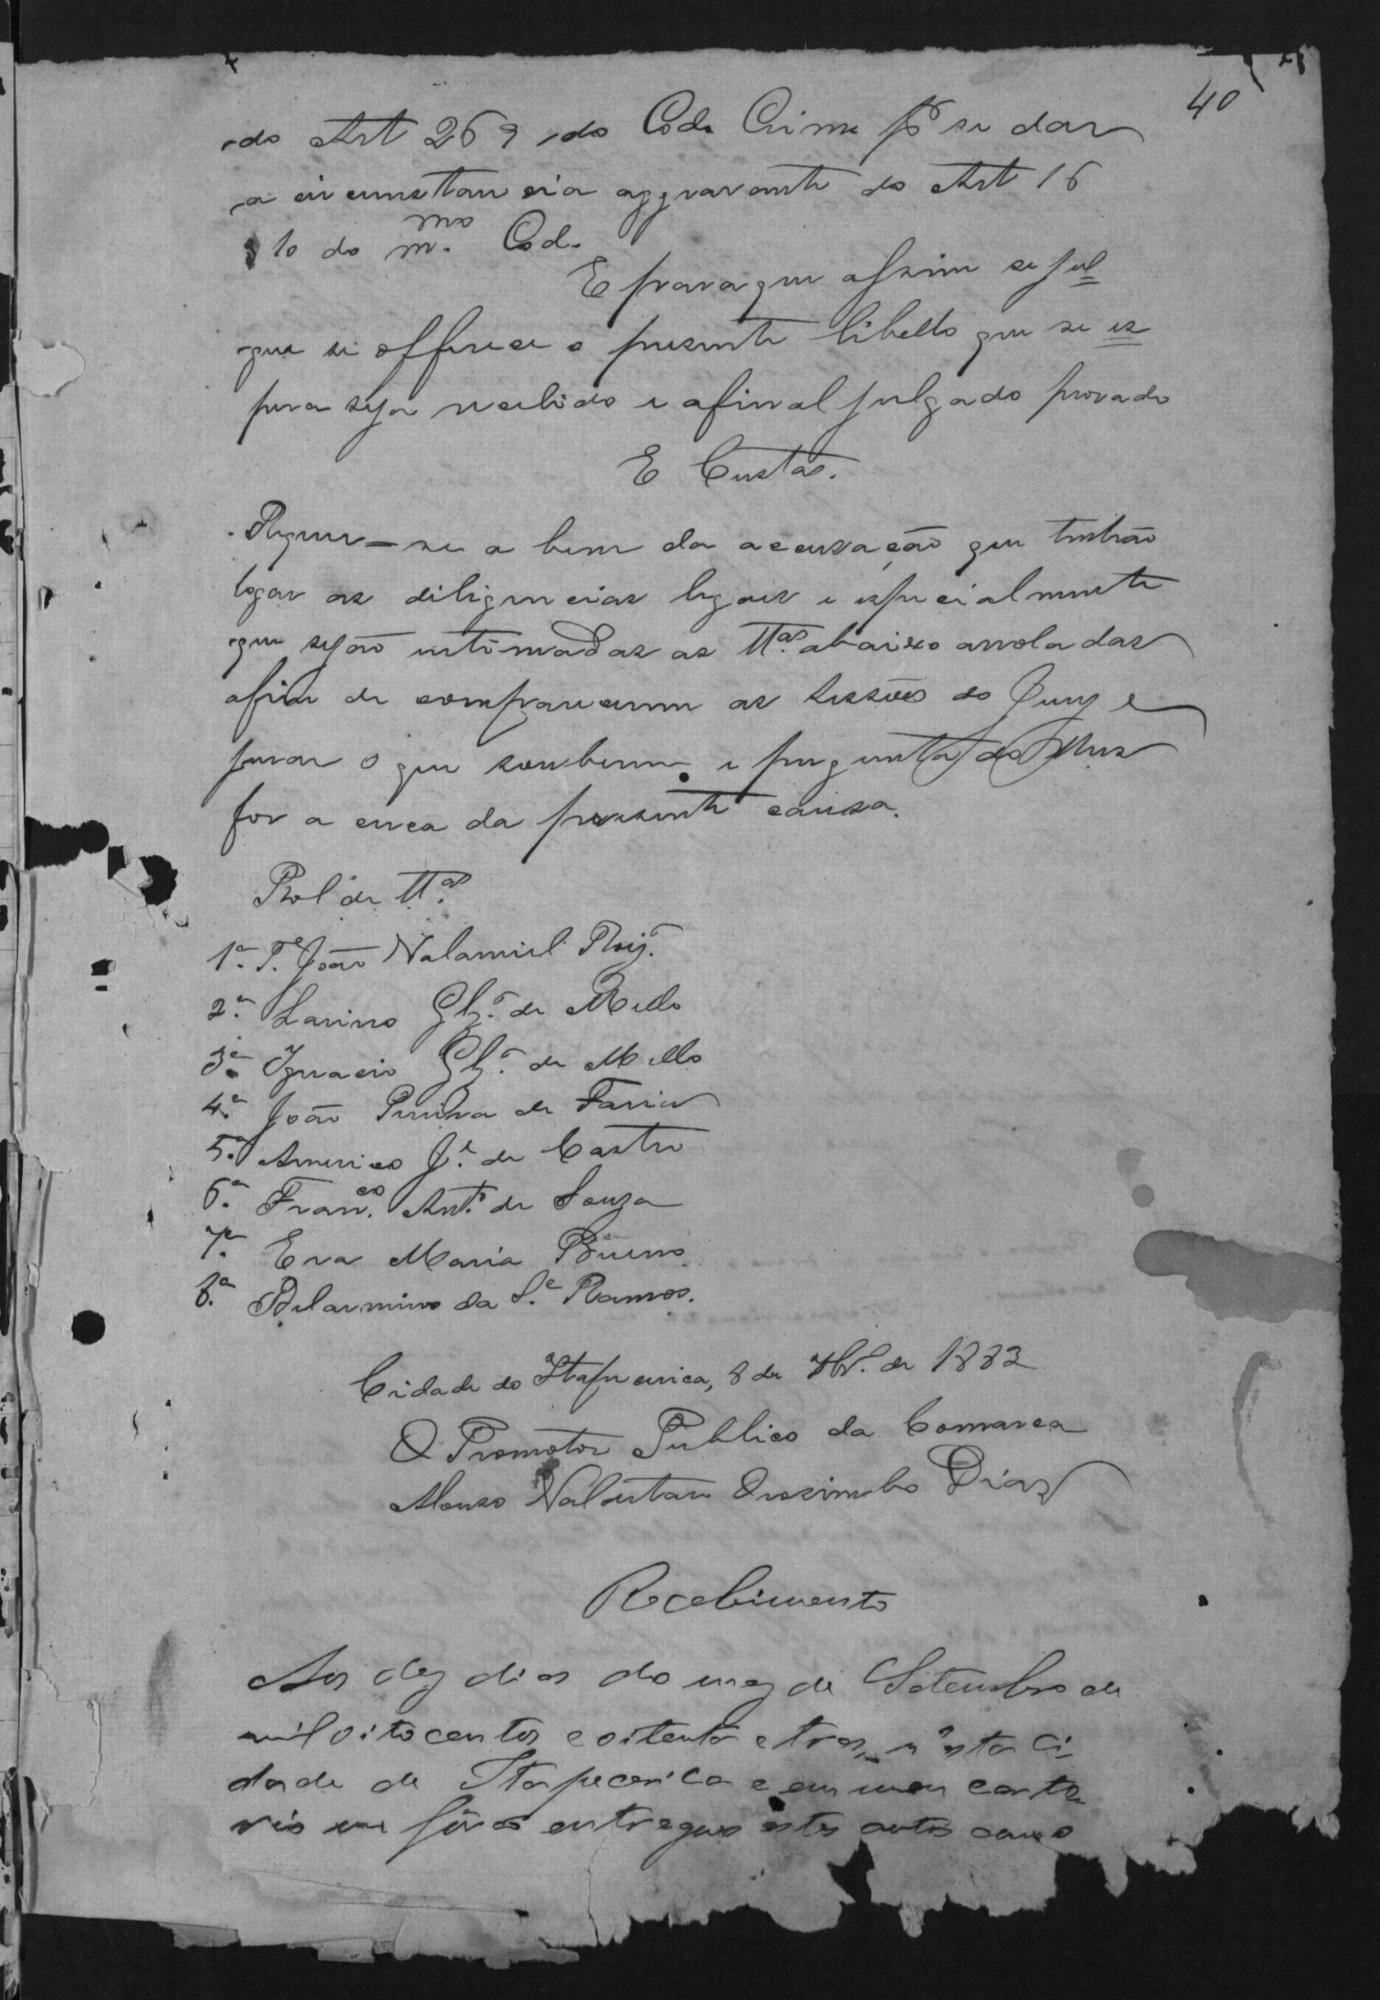 40
do Art 269 do Cod. Crime pr. se dar
a circumstancia aggravante do Art 16
§ 10 do m.mo Cod.
E para que assim se jul=
gue se offerece o presente libello que se es=
pera seja recebido e afinal julgado provado
E Custas.
Requer-se a bem da accusação que tenhão
logar as diligencias legaes e especialmente
que sejão intimadas as tt.as abaixo arroladas
afim de comparecerem as sessões do Jury e
jurar o que souberem e perguntado lhes
for a cerca da presente causa.
Rol de tt.as
1.a T.e João Nalamiel Roiz.
2.a Lauino Glz. de Mello
3.a Ignacio Glz. de Mello
4.a João Pereira de Faria
5.a Americo J.e de Castro
6.a Fran.co Ant.o de Souza
7.a Eva Maria Bueno
8.a Belarmino da S.a Ramos.
Cidade do Itapecerica, 8 de 7br.o de 1883
O Promotor Publico da Comarca
Alonso Orozimbo Dias
Recebimento
Aos dez dias do mez de Setembro de
mil oitocentos e oitenta e tres, n'esta Ci
dade de Itapecerica e em meu carto
rio me fôrão entregues estes autos com o